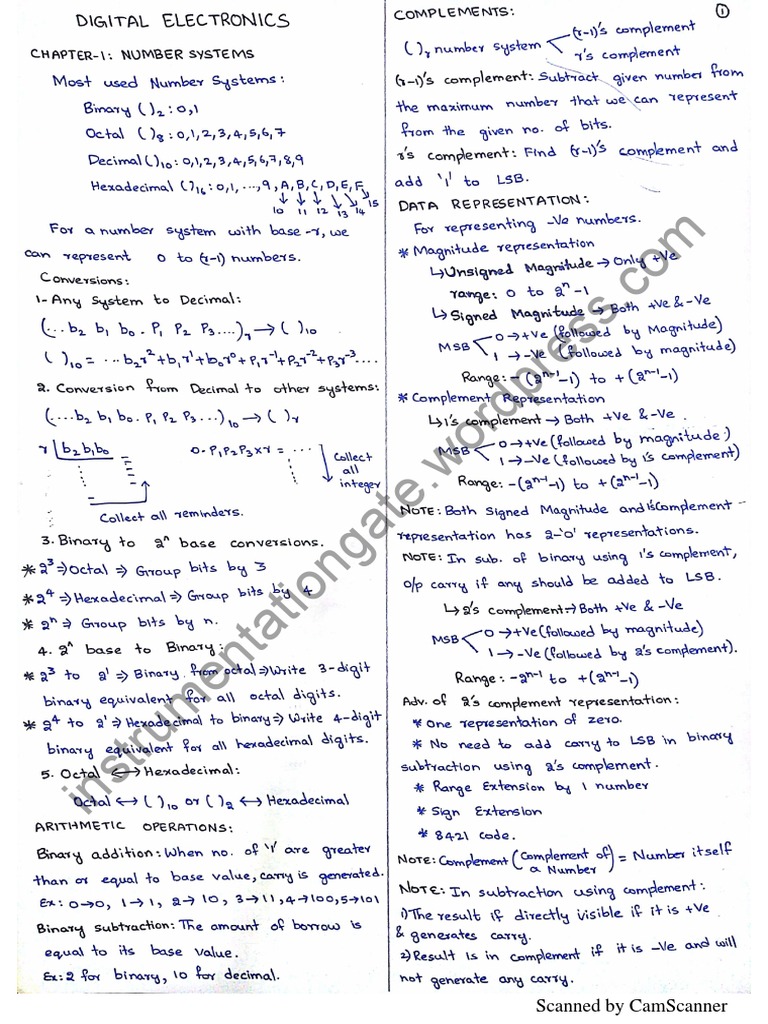 DIGITAL ELECTRONICS
CHAPTER-1: NUMBER SYSTEMS
Most used Number Systems:
Binary ( )2 : 0,1
Octal ( )8 : 0,1,2,3,4,5,6,7
Decimal ( )10 : 0,1,2,3,4,5,6,7,8,9
Hexadecimal ( )16 : 0,1, ...,9, A, B, C, D, E, F
10 11 12 13 14 15
For a number system with base -r, we
can represent 0 to (r-1) numbers.
Conversions:
1- Any System to Decimal:
(... b2 b1 b0 . P1 P2 P3....)r → ( )10
( )10 = ... b2r² + b1r¹ + b0r⁰ + P1r⁻¹ + P2r⁻² + P3r⁻³....
2. Conversion from Decimal to other systems:
(... b2 b1 b0 . P1 P2 P3 ...)10 → ( )r
r | b2 b1 b0 0. P1 P2 P3 x r = ...
Collect
all
integer
Collect all reminders.
3. Binary to 2ⁿ base conversions.
* 2³ ⇒ Octal ⇒ Group bits by 3
* 2⁴ ⇒ Hexadecimal ⇒ Group bits by 4
* 2ⁿ ⇒ Group bits by n.
4. 2ⁿ base to Binary:
* 2³ to 2¹ ⇒ Binary from octal ⇒ Write 3-digit
binary equivalent for all octal digits.
* 2⁴ to 2¹ ⇒ Hexadecimal to binary ⇒ Write 4-digit
binary equivalent for all hexadecimal digits.
5. Octal ⟷ Hexadecimal:
Octal ⟷ ( )10 or ( )2 ⟷ Hexadecimal
ARITHMETIC OPERATIONS:
Binary addition: When no. of '1' are greater
than or equal to base value, carry is generated.
Ex: 0→0, 1→1, 2→10, 3→11, 4→100, 5→101
Binary subtraction: The amount of borrow is
equal to its base value.
Ex: 2 for binary, 10 for decimal.
COMPLEMENTS: 1
( )r number system (r-1)'s complement
r's complement
(r-1)'s complement: Subtract given number from
the maximum number that we can represent
from the given no. of bits.
r's complement: Find (r-1)'s complement and
add '1' to LSB.
DATA REPRESENTATION:
For representing -Ve numbers.
* Magnitude representation
↳ Unsigned Magnitude → Only +Ve
range: 0 to 2ⁿ-1
↳ Signed Magnitude → Both +Ve & -Ve
MSB 0 → +Ve (followed by Magnitude)
1 → -Ve (followed by magnitude)
Range: -(2ⁿ⁻¹-1) to +(2ⁿ⁻¹-1)
* Complement Representation
↳ 1's complement → Both +Ve & -Ve.
MSB 0 → +Ve (followed by magnitude)
1 → -Ve (followed by 1's complement)
Range: -(2ⁿ⁻¹-1) to +(2ⁿ⁻¹-1)
NOTE: Both Signed Magnitude and 1's Complement
representation has 2-'0' representations.
NOTE: In sub. of binary using 1's complement,
o/p carry if any should be added to LSB.
↳ 2's complement → Both +Ve & -Ve
MSB 0 → +Ve (followed by magnitude)
1 → -Ve (followed by 2's complement).
Range: -2ⁿ⁻¹ to +(2ⁿ⁻¹-1)
Adv. of 2's complement representation:
* One representation of zero.
* No need to add carry to LSB in binary
subtraction using 2's complement.
* Range Extension by 1 number
* Sign Extension
* 8421 code.
NOTE: Complement (Complement of a Number) = Number itself
NOTE: In subtraction using complement:
1) The result if directly visible if it is +Ve
& generates carry.
2) Result Is in complement if it is -Ve and will
not generate any carry.
instrumentationgate.wordpress.com
Scanned by CamScanner